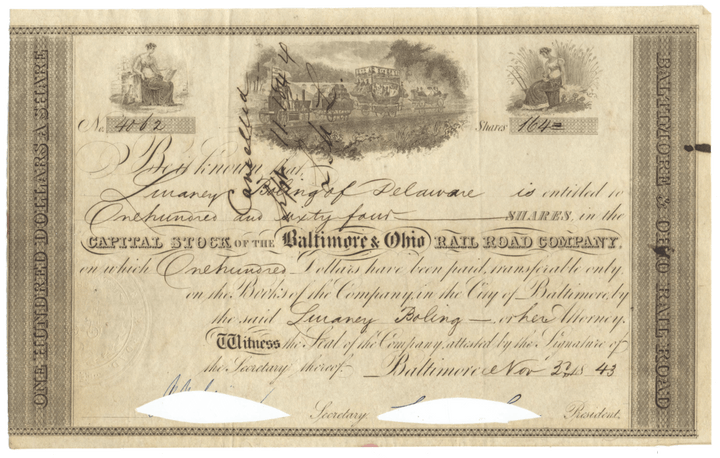 ONE HUNDRED DOLLARS A SHARE
BALTIMORE & OHIO RAIL ROAD
No. 4062
Shares 164
Cancelled
Be it known that
Boling of Delaware is entitled to
One hundred and sixty four SHARES in the
CAPITAL STOCK OF THE Baltimore & Ohio RAIL ROAD COMPANY,
on which One hundred Dollars have been paid, transferable only
on the Books of the Company, in the City of Baltimore, by
the said Boling or her Attorney.
Witness the Seal of the Company, attested by the Signature of
the Secretary thereof. Baltimore Nov 43
Secretary. President.